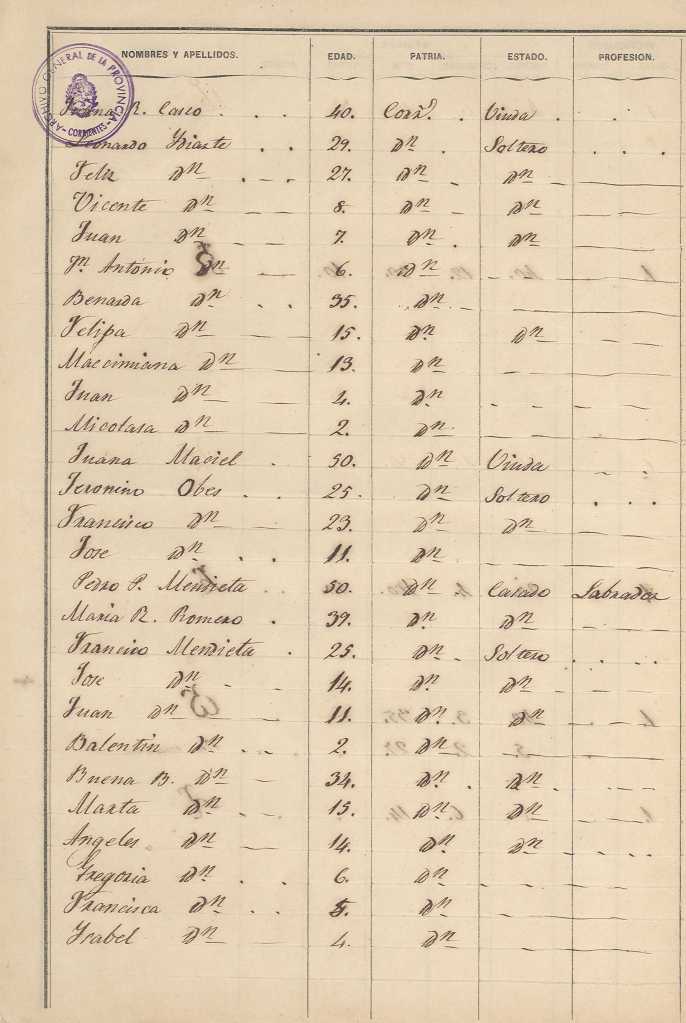 NOMBRES Y APELLIDOS. EDAD. PATRIA. ESTADO. PROFESION.
ARCHIVO GENERAL DE LA PROVINCIA - CORRIENTES -
Juana R. Casco 40. Viuda
Leonardo Yriarte 29. Dn Soltero
Feliz Dn 27. Dn Dn
Vicente Dn 8. Dn Dn
Juan Dn 7. Dn Dn
Jn Antonio Dn 6. Dn
Benarda Dn 35. Dn
Felipa Dn 15. Dn Dn
Maccimiana Dn 13. Dn
Juan Dn 4. Dn
Nicolasa Dn 2. Dn
Juana Maciel 50. Dn Viuda
Jeronimo Obes 25. Dn Soltero
Francisco Dn 23. Dn Dn
Jose Dn 11. Dn
Pedro P. Mendieta 50. Dn Casado Labrador
Maria R. Romero 39. Dn Dn
Mendieta 25. Dn Soltero
Jose Dn 14. Dn Dn
Juan Dn 11. Dn Dn
Balentin Dn 2. Dn
Buena B. Dn 34. Dn Dn
Marta Dn 15. Dn Dn
Angeles Dn 14. Dn Dn
Gregoria Dn 6. Dn
Francisca Dn 5. Dn
Ysabel Dn 4. Dn